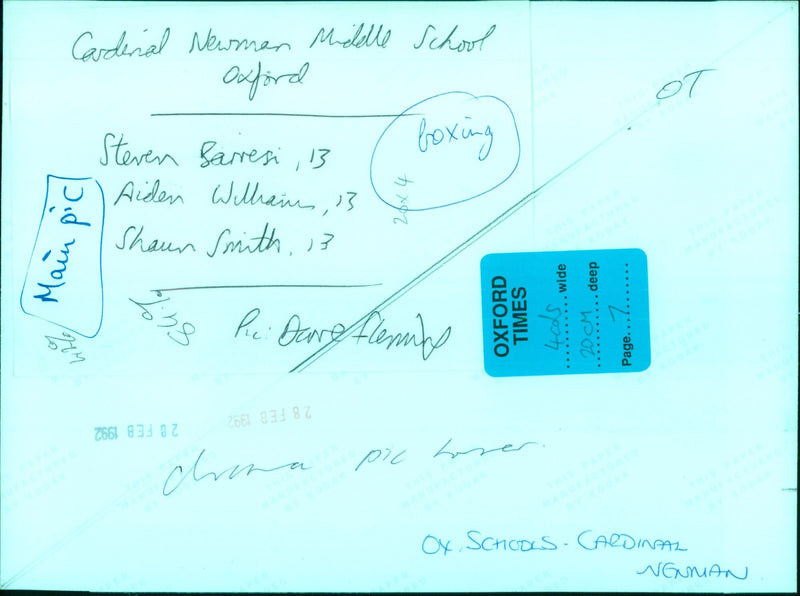 Cardinal Newman Middle School
Oxford
OT
boxing
Steven Barresi, 13
Aiden Williams, 13
Shaun Smith, 13
20x4
Main pic
Pic: Dave Fleming
OXFORD
TIMES
4cols wide
20cm deep
Page 7
28 FEB 1992
28 FEB 1992
drama pic
OX. SCHOOLS - CARDINAL
NEWMAN
THIS PAPER
MANUFACTURED
BY KODAK